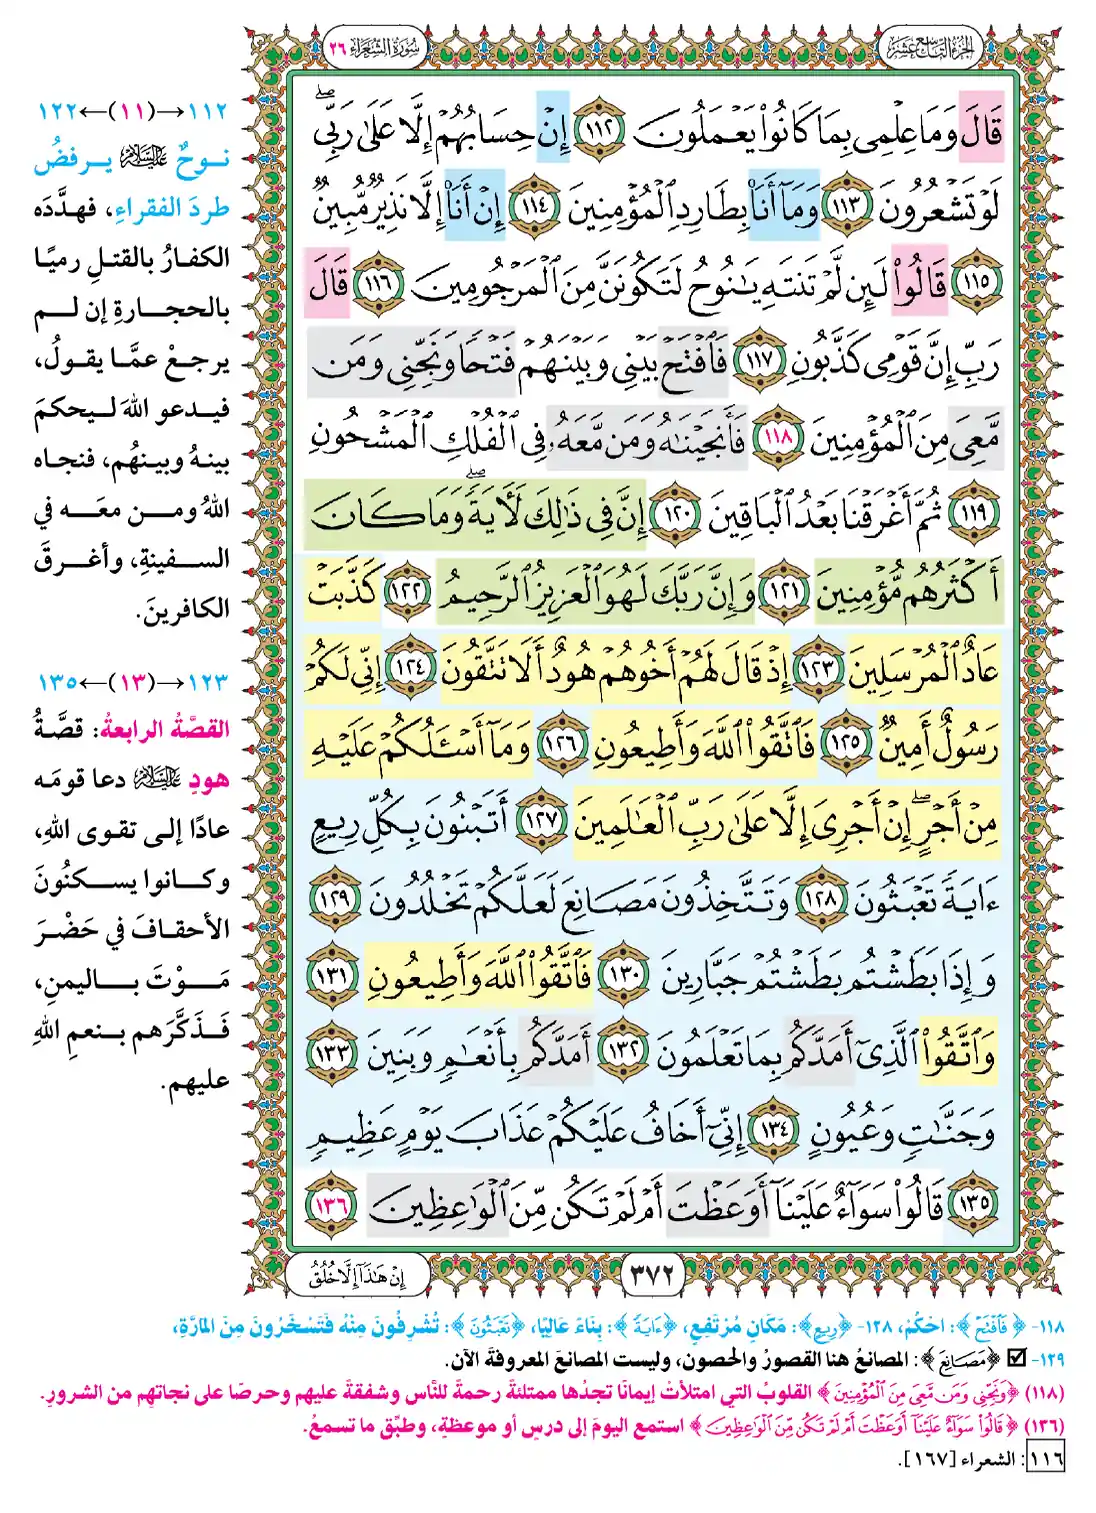 الجزء التاسع عشر
سورة الشعراء ٢٦
قَالَ وَمَا عِلْمِى بِمَا كَانُوا۟ يَعْمَلُونَ ١١٢ إِنْ حِسَابُهُمْ إِلَّا عَلَىٰ رَبِّى ۖ
لَوْ تَشْعُرُونَ ١١٣ وَمَآ أَنَا۠ بِطَارِدِ ٱلْمُؤْمِنِينَ ١١٤ إِنْ أَنَا۠ إِلَّا نَذِيرٌ مُّبِينٌ
١١٥ قَالُوا۟ لَئِن لَّمْ تَنتَهِ يَـٰنُوحُ لَتَكُونَنَّ مِنَ ٱلْمَرْجُومِينَ ١١٦ قَالَ
رَبِّ إِنَّ قَوْمِى كَذَّبُونِ ١١٧ فَٱفْتَحْ بَيْنِى وَبَيْنَهُمْ فَتْحًا وَنَجِّنِى وَمَن
مَّعِىَ مِنَ ٱلْمُؤْمِنِينَ ١١٨ فَأَنجَيْنَـٰهُ وَمَن مَّعَهُۥ فِى ٱلْفُلْكِ ٱلْمَشْحُونِ
١١٩ ثُمَّ أَغْرَقْنَا بَعْدُ ٱلْبَاقِينَ ١٢٠ إِنَّ فِى ذَٰلِكَ لَـَٔايَةً ۖ وَمَا كَانَ
أَكْثَرُهُم مُّؤْمِنِينَ ١٢١ وَإِنَّ رَبَّكَ لَهُوَ ٱلْعَزِيزُ ٱلرَّحِيمُ ١٢٢ كَذَّبَتْ
عَادٌ ٱلْمُرْسَلِينَ ١٢٣ إِذْ قَالَ لَهُمْ أَخُوهُمْ هُودٌ أَلَا تَتَّقُونَ ١٢٤ إِنِّى لَكُمْ
رَسُولٌ أَمِينٌ ١٢٥ فَٱتَّقُوا۟ ٱللَّهَ وَأَطِيعُونِ ١٢٦ وَمَآ أَسْـَٔلُكُمْ عَلَيْهِ
مِنْ أَجْرٍ ۖ إِنْ أَجْرِىَ إِلَّا عَلَىٰ رَبِّ ٱلْعَـٰلَمِينَ ١٢٧ أَتَبْنُونَ بِكُلِّ رِيعٍ
ءَايَةً تَعْبَثُونَ ١٢٨ وَتَتَّخِذُونَ مَصَانِعَ لَعَلَّكُمْ تَخْلُدُونَ ١٢٩
وَإِذَا بَطَشْتُم بَطَشْتُمْ جَبَّارِينَ ١٣٠ فَٱتَّقُوا۟ ٱللَّهَ وَأَطِيعُونِ ١٣١
وَٱتَّقُوا۟ ٱلَّذِىٓ أَمَدَّكُم بِمَا تَعْلَمُونَ ١٣٢ أَمَدَّكُم بِأَنْعَـٰمٍ وَبَنِينَ ١٣٣
وَجَنَّـٰتٍ وَعُيُونٍ ١٣٤ إِنِّىٓ أَخَافُ عَلَيْكُمْ عَذَابَ يَوْمٍ عَظِيمٍ
١٣٥ قَالُوا۟ سَوَآءٌ عَلَيْنَآ أَوَعَظْتَ أَمْ لَمْ تَكُن مِّنَ ٱلْوَٰعِظِينَ ١٣٦
٣٧٢
إِنْ هَـٰذَآ إِلَّا خُلُقُ
١١٢→(١١)←١٢٢
نوحٌ عليه السلام يرفضُ
طردَ الفقراءِ، فهدَّده
الكفارُ بالقتلِ رميًا
بالحجارةِ إن لم
يرجعْ عمَّا يقولُ،
فيدعو اللهَ ليحكمَ
بينهُ وبينهُم، فنجاه
اللهُ ومن معَه في
السفينةِ، وأغرقَ
الكافرينَ.
١٢٣→(١٣)←١٣٥
القصَّةُ الرابعةُ: قصَّةُ
هودٍ عليه السلام دعا قومَه
عادًا إلى تقوى اللهِ،
وكانوا يسكنُونَ
الأحقافَ في حَضْرَ
مَوْتَ باليمنِ،
فَذَكَّرَهم بنعمِ اللهِ
عليهم.
١١٨- ﴿فَٱفْتَحْ﴾: احكُمْ، ١٢٨- ﴿رِيعٍ﴾: مَكَانٍ مُرْتَفِعٍ، ﴿ءَايَةً﴾: بِنَاءً عَالِيًا، ﴿تَعْبَثُونَ﴾: تُشْرِفُونَ مِنْهُ فَتَسْخَرُونَ مِنَ المَارَّةِ،
١٢٩- ☑ ﴿مَصَانِعَ﴾: المصانعُ هنا القصورُ والحصون، وليست المصانعَ المعروفةَ الآن.
(١١٨) ﴿وَنَجِّنِى وَمَن مَّعِىَ مِنَ ٱلْمُؤْمِنِينَ﴾ القلوبُ التي امتلأتْ إيمانًا تجدُها ممتلئةً رحمةً للنَّاس وشفقةً عليهم وحرصًا على نجاتهِم من الشرورِ.
(١٣٦) ﴿قَالُوا۟ سَوَآءٌ عَلَيْنَآ أَوَعَظْتَ أَمْ لَمْ تَكُن مِّنَ ٱلْوَٰعِظِينَ﴾ استمع اليومَ إلى درسٍ أو موعظةٍ، وطبِّق ما تسمعُ.
١١٦: الشعراء [١٦٧].